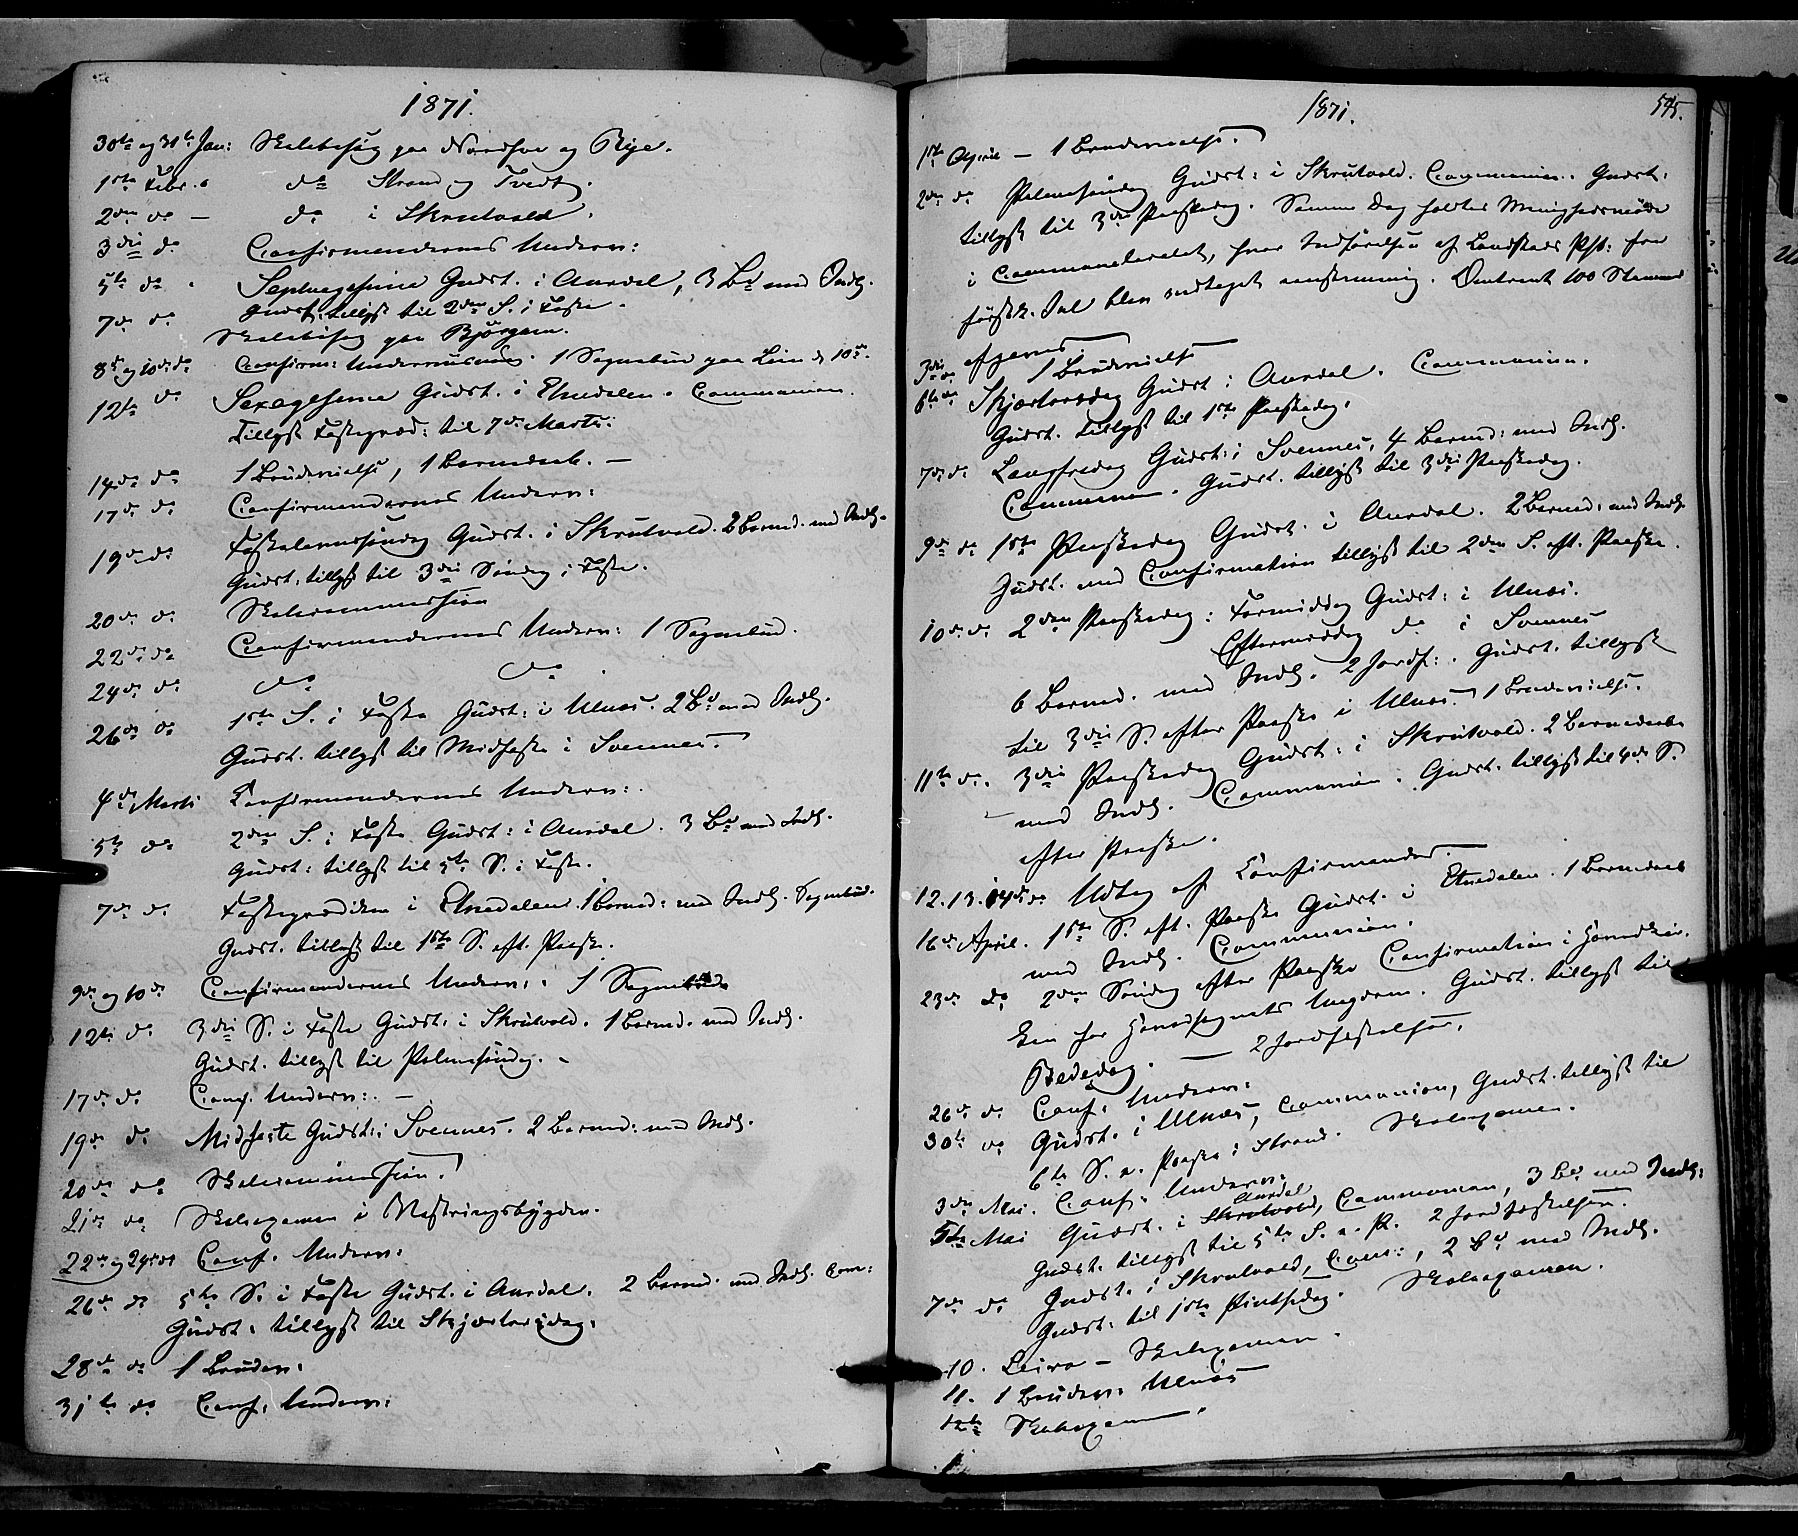 1871.
30te og 31te Jan: Skolebesøg paa Nordhøe og Rye.
1ste Febr. do Strand og Tvedt.
2den do - do i Skrutvold.
3die do Confirmandernes Underv:
5te do Septuagesima Gudst. i Aurdal, 3 Bd med Indl.
Gudst. tillyst til 2den S. i Faste.
7de do Skolebesøg paa Bjørgam.
8de og 10de do Confirm: Underviisning. 1 Sognebud paa Lein d. 10de.
12te do Sexagesima Gudst. i Etnedalen. Communion.
Tillyst Fastepræd: til 7de Marts.
14de do 1 Brudevielse, 1 Barnedaab. -
17de do Confirmandernes Underv:
19de do Fastelavnssøndag Gudst. i Skrutvold. 2 Barned. med Indl.
Gudst. tillyst til 3die Søndag i Faste.
20de do Skolecommission
22de do Confirmandernes Underv: 1 Sognebud.
24de do do do
26de do 1ste S. i Faste Gudst: i Ulnæs. 2 Bd med Indl.
Gudst. tillyst til Midfaste i Svennes.
4de Marts Confirmandernes Underv:
5te do 2den S. i Faste Gudst: i Aurdal. 3 Bd med Indl.
Gudst: tillyst til 5te S. i Faste.
7de do Fasteprædiken i Etnedalen. 1 Barned: med Indl. Sognebud.
Gudst. tillyst til 1ste S. eft. Paaske.
9de og 10de Confirmandernes Underv: 1 Sognebud
12te do 3die S. i Faste Gudst: i Skrutvold. 1 Barned. med Indl.
Gudst. tillyst til Palmesøndag. -
17de do Conf. Underv: -
19de do Midfaste Gudst: i Svennes. 2 Barned: med Indl.
20de do Skolecommission.
21de do Skolexamen i Vestringsbygden.
22de og 24de do Conf. Underv:
26de do 5te S. i Faste Gudst. i Aurdal. 2 Barned. med Indl. Com:
Gudst: tillyst til Skjærtorsdag.
28de do 1 Brudev:
31te do Conf: Underv:
1871. 545.
1ste April - 1 Brudevielse.
2den do Palmesøndag Gudst: i Skrutvold. Communion. Gudst:
tillyst til 3die Paaskedag. Samme Dag holdtes Menighedsmøde
i Communelocalet, hvor Indførelsen af Landstads Psb: for
første. Sal blev vedtaget eenstemmig. Omtrent 100 Stemmer
afgaves.
3die do 1 Brudevielse
6te do Skjærtorsdag Gudst: i Aurdal. Communion.
Gudst. tillyst til 1ste Paaskedag.
7de do Langfredag Gudst: i Svennes, 4 Barned: med Indl.
Communion. Gudst. tillyst til 3die Paaskedag.
9de do 1ste Paaskedag Gudst. i Aurdal. 2 Barned: med Indl.
Gudst. med Confirmation tillyst til 2den S. eft. Paaske.
10de do 2den Paaskedag: Formiddag Gudst: i Ulnæs.
Eftermiddag do i Svennes
6 Barned. med Indl. 2 Jordf:. Gudst. tillyst
til 3die S. efter Paaske i Ulnæs. 1 Brudevielse.
11te do. 3die Paaskedag Gudst: i Skrutvold. 2 Barnedaab
med Indl. Communion. Gudst. tillyst til 4de S.
efter Paaske.
12. 13. 14de do Udtog af Confirmander.
16de April. 1ste S. eft. Paaske Gudst. i Etnedalen. 1 Barnedaab
med Indl. Communion.
23de do 2den Søndag efter Paaske Confirmation i Hovedkir-
ken for Hovedsognets Ungdom. Gudst. tillyst til
Bededag. - 2 Jordfæstelser.
26de do Conf. Underv:
30te do Gudst. i Ulnæs, Communion, Gudst. tillyst til
6te S. e. Paaske i Strand. Skolexamen.
3die Mai. Conf. Underv:
5te Mai Gudst. i Skrutvold Aurdal, Communion, 3 Bd med Indl:
Gudst. tillyst til 5te S. e. P. 2 Jordfæstelser.
7de do Gudst. i Skrutvold, Com:, 2 Bd med Indl.
Gudst: til 1ste Pintsedag. Skolexamen.
10. Leira - Skolexamen.
11. 1 Brudev: Ulnæs
12te Skolexamen.